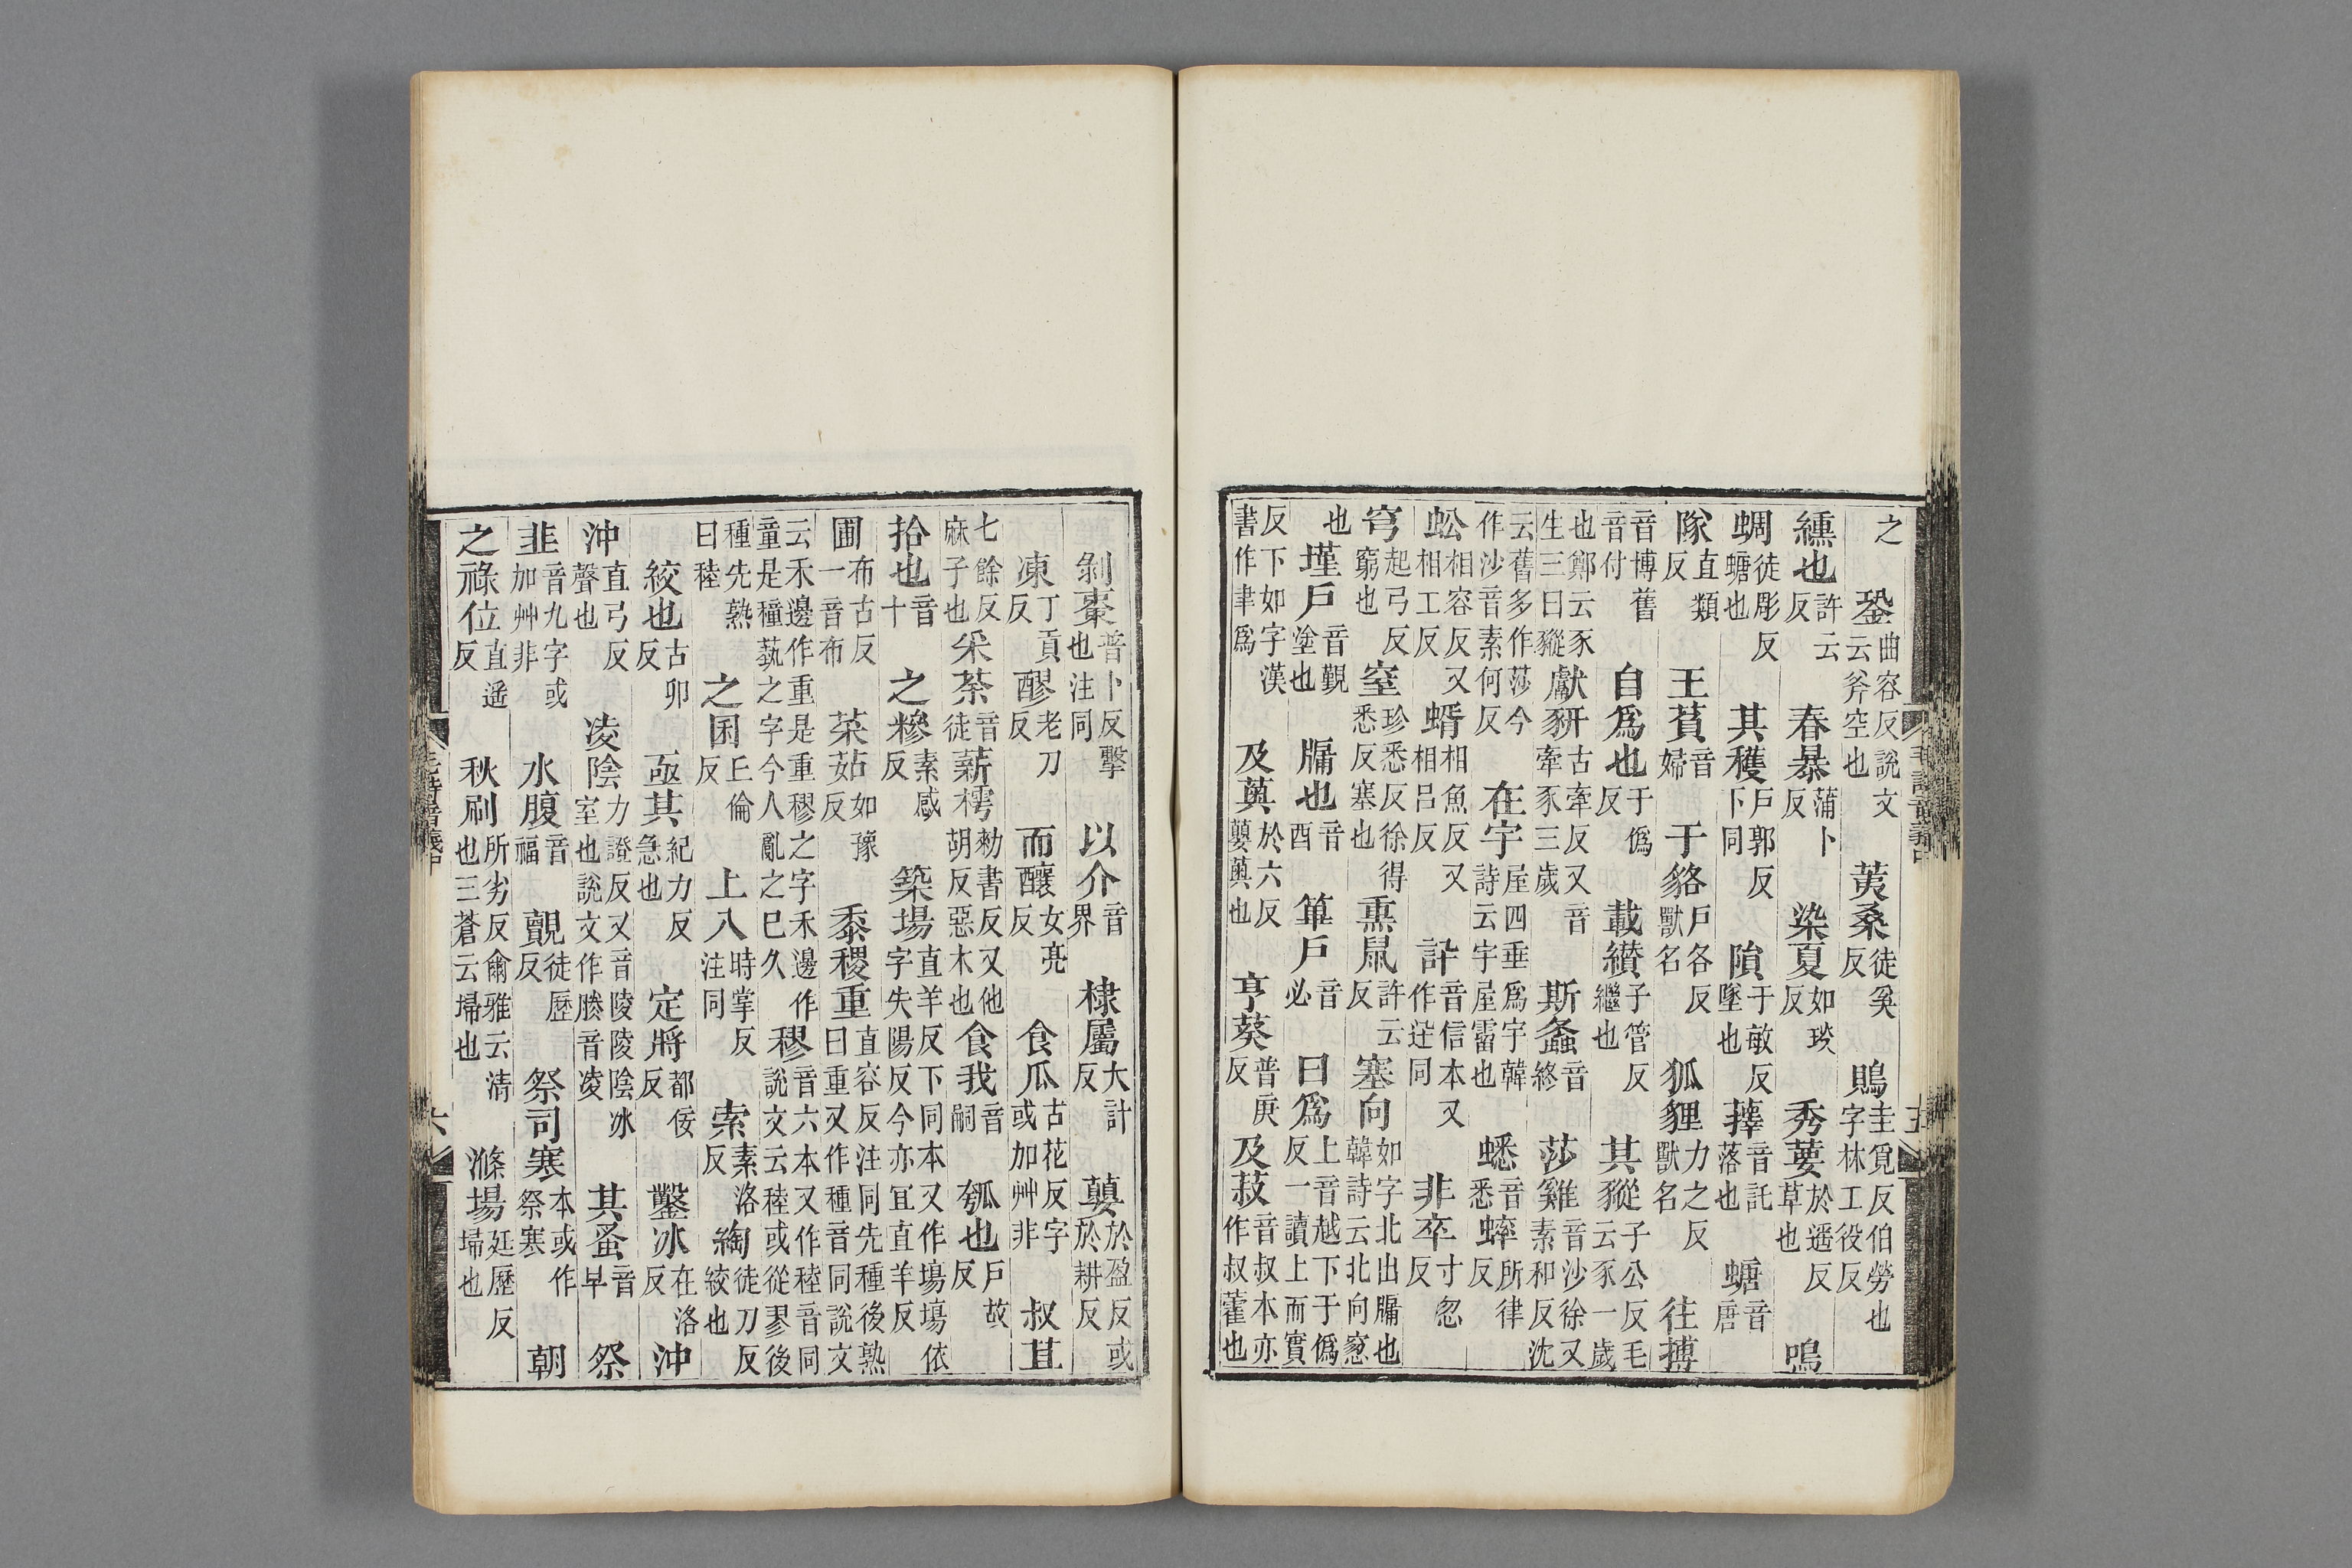 之　銎曲容反說文云斧空也　荑桑徒奚反　鵙圭覓反伯勞也字林工役反
纁也許云反　春暴蒲卜反　染夏如琰反　秀葽於遥反草也　鳴
蜩徒彫反螗也　其穫戶郭反下同　隕于敏反墜也　蘀音託落也　螗音唐
隊直類反　王萯音婦　于貉戶各反獸名　狐狸力之反獸名　往搏
音博舊音付　自爲也于僞反　載纘子管反繼也　其豵子公反毛云豕一歲
也鄭云豕生三曰豵　獻豜古牽反又音牽豕三歲　斯螽音終　莎雞音沙徐又素和反沈
云舊多作莎今作沙音素何反　在宇屋四垂爲宇韓詩云宇屋霤也　蟋音悉　蟀所律反
蚣相容反又相工反　蝑相魚反又相吕反　訊音信本又作迅同　非卒寸忽反
穹起弓反窮也　窒珍悉反徐得悉反塞也　熏鼠許云反　塞向如字北出牖也韓詩云北向窻
也　墐戶音覲塗也　牖也音酉　篳戶音必　曰爲上音越下于僞反一讀上而實
反下如字漢書作聿爲　及薁於六反蘡薁也　亨葵普庚反　及菽音叔本亦作叔藿也
毛詩音義中　五
剝棗普卜反擊也注同　以介音界　棣屬大計反　蘡於盈反或於耕反
凍丁貢反　醪老刀反　而釀女亮反　食瓜古花反字或加艸非　叔苴
七餘反麻子也　采荼音徒　薪樗勑書反又他胡反惡木也　食我音嗣　瓠也戶故反
拾也音十　之糝素感反　築場直羊反下同本又作塲塲依字失陽反今亦宜直羊反
圃布古反一音布　菜茹如豫反　黍稷重直容反注同先種後熟曰重又作種音同說文
云禾邊作重是重穋之字禾邊作童是穜蓺之字今人亂之巳久　穋音六本又作稑音同說文云稑或從翏後
種先熟曰稑　之囷丘倫反　上入時掌反注同　索素洛反　綯徒刀反絞也
絞也古卯反　亟其紀力反急也　定將都佞反　鑿冰在洛反　沖
沖直弓反聲也　凌陰力證反又音陵陵陰冰室也說文作音凌　其蚤音早　祭
韭音九字或加艸非　水腹音福　覿徒歷反　祭司寒本或作祭寒　朝
之祿位直遥反　秋刷所劣反爾雅云清也三蒼云埽也　滌場廷歷反埽也
毛詩音義中　六